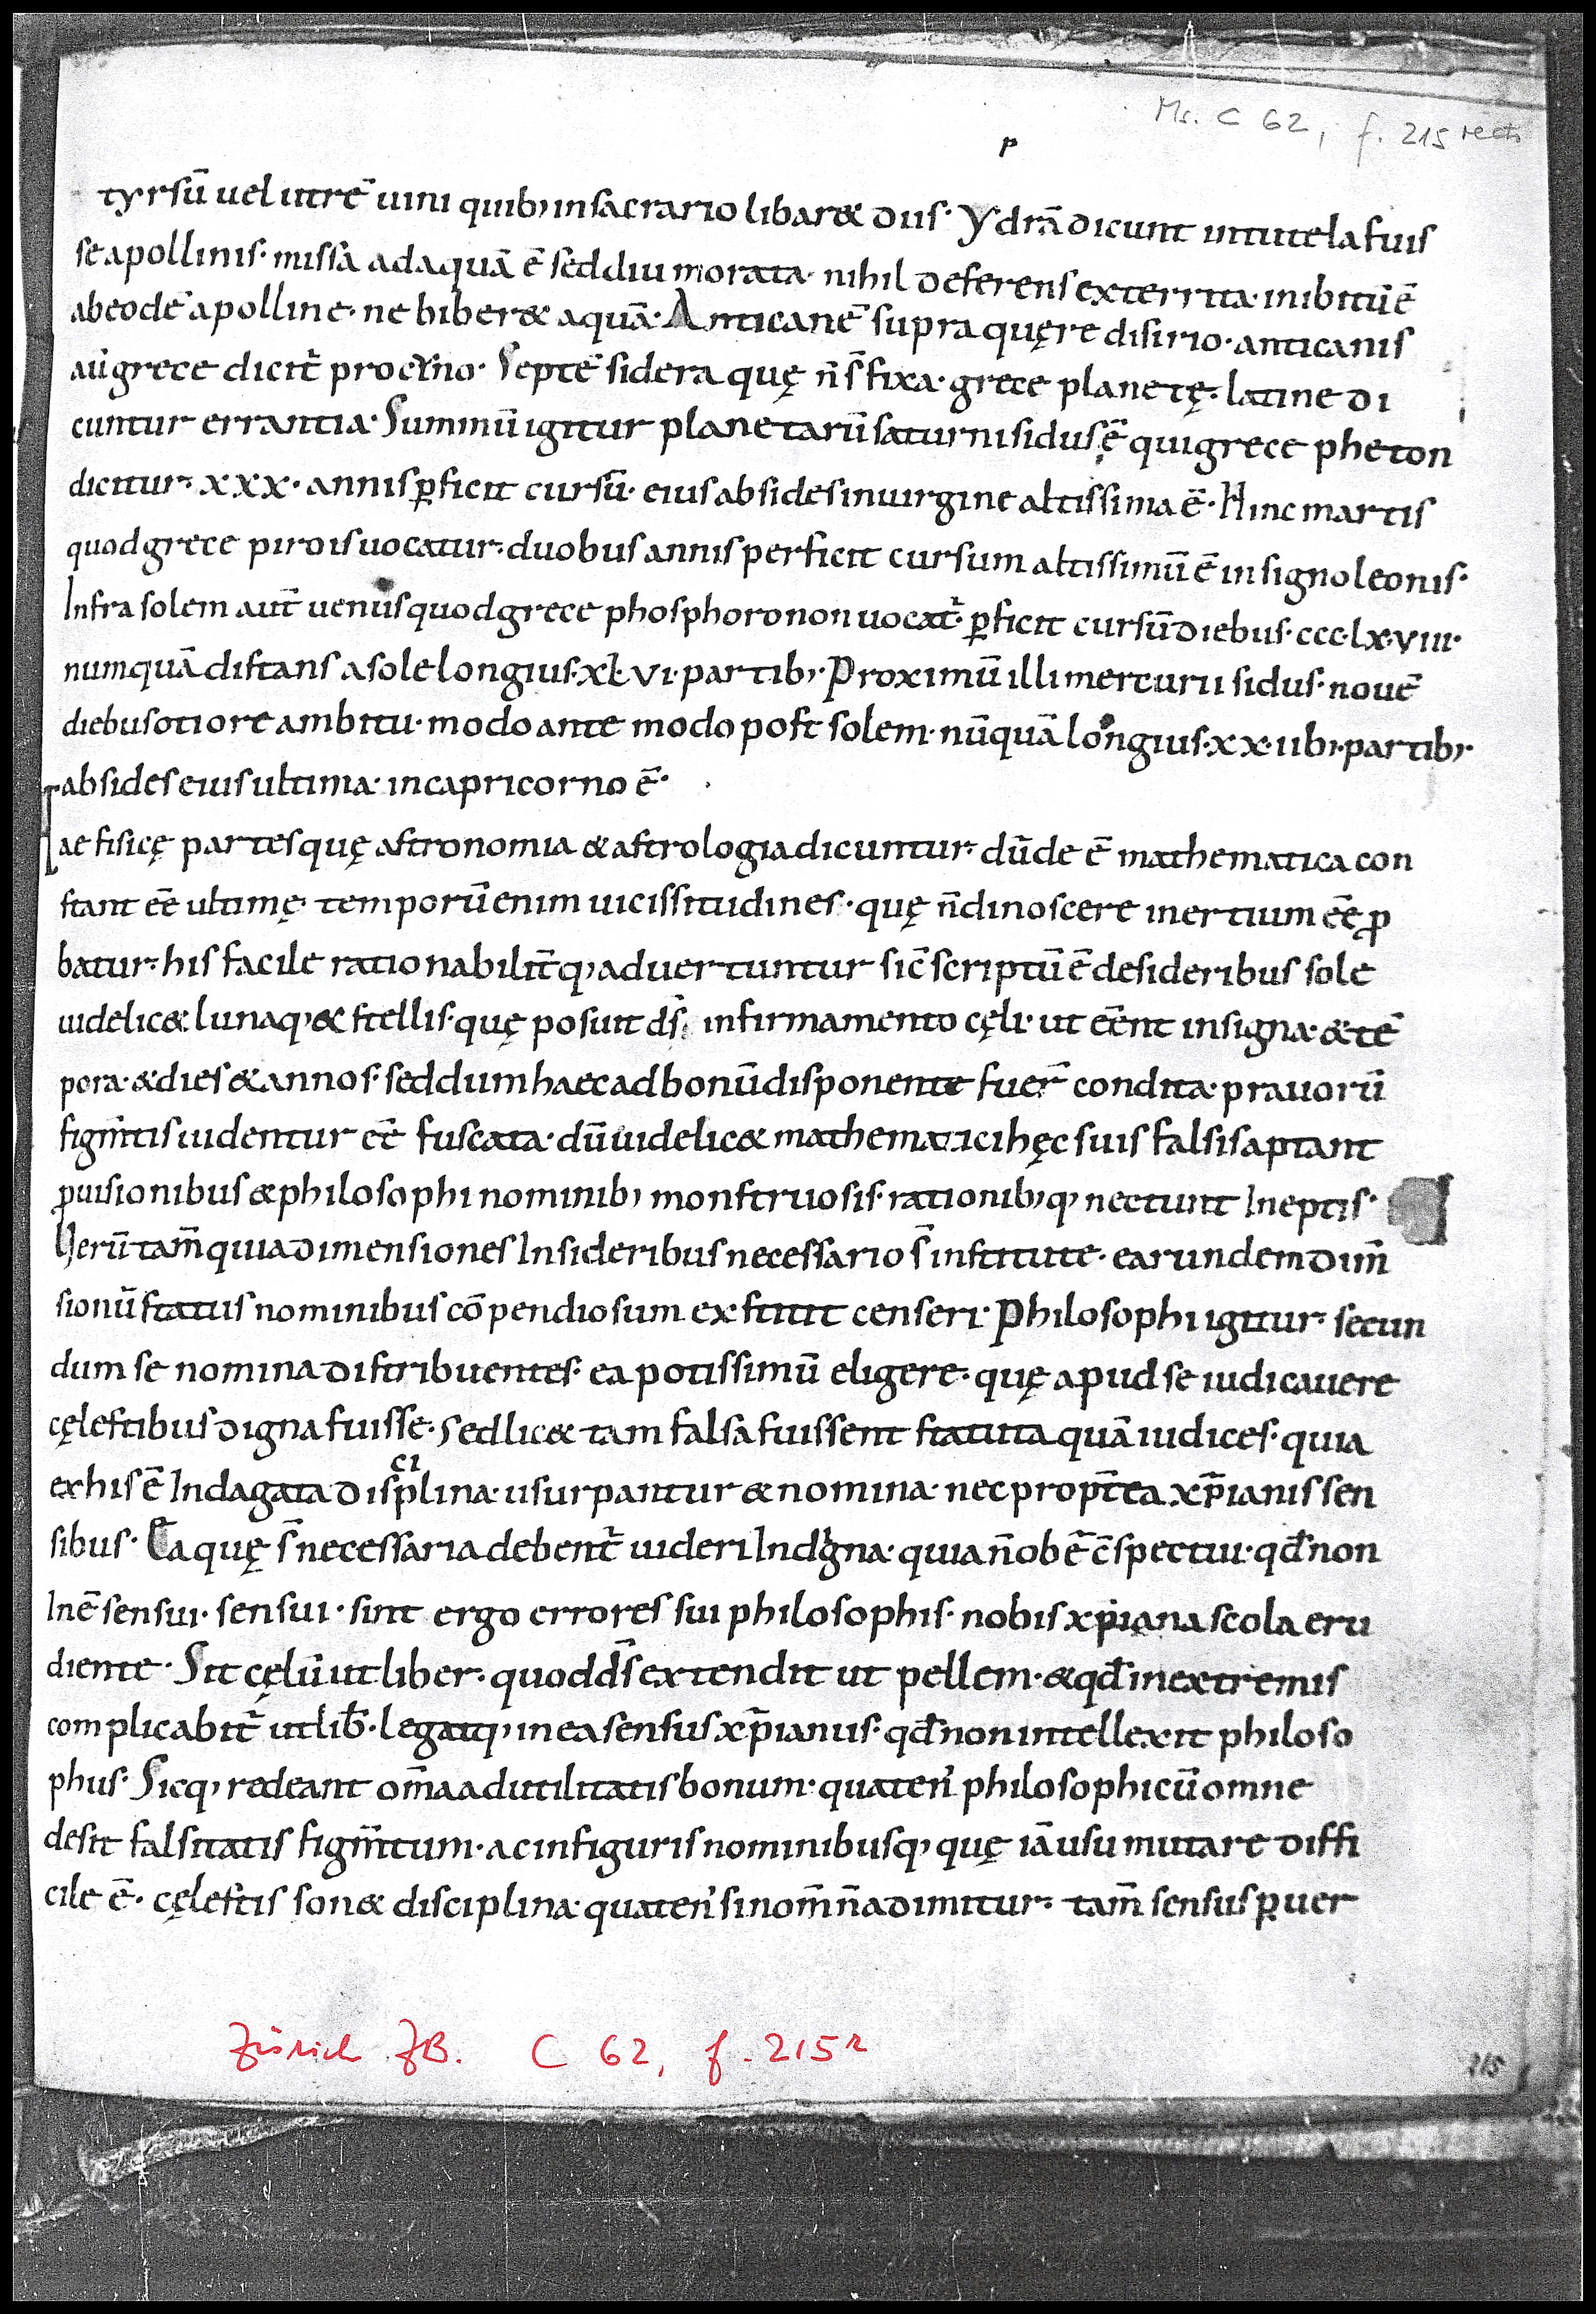 Ms. C 62, f. 215 recto
p
tyrsū uel utrē uini quib; in sacrario libar& diis· Ydrā dicunt in tutela fuis
se apollinis· missā ad aquā ē sed diu morata· nihil deferens exterrita· inibitū ē
ab eodē apolline· ne biber& aquā· Anticanē supra quęre di sirio· anticanis
aū grece dicit̄ procino· Septē sidera quę n̄ s̄ fixa· grece planetę· latine di
cuntur errantia· Summū igitur planetarū saturni sidus ē qui grece pheton
dicitur· xxx· annis ꝑficit cursū· eius absides in uirgine altissima ē· Hinc martis
quod grece pirois uocatur· duobus annis perficit cursum altissimū ē in signo leonis·
Infra solem aut̄ uenus quod grece phosphoronon uocat̄· ꝑficit cursū diebus· ccc·lx·viii·
numquā distans a sole longius· xl·vi· partib;· Proximū illi mercurii sidus· nouē
diebus otiore ambitu· modo ante modo post solem· nūquā longius· xx·iib;· partib;·
absides eius ultima· in capricorno ē·
Hae fisicę partes quę astronomia & astrologia dicuntur· dūde ē mathematica con
stant eē ultimę· temporū enim uicissitudines· quę n̄ dinoscere inertium eē ꝓ
batur· his facile rationabilit̄q; aduertuntur sic̄ scriptū ē de sideribus sole
uidelic& lunaq; & stellis· quę posuit ds̄· in firmamento cęli· ut eēnt in signa· & tē
pora· & dies & annos· sed dum haec ad bonū disponente fuer̄ condita· prauorū
figm̄tis uidentur eē fuscata· dū uidelic& mathematici hęc suis falsis aptant
ꝓuisionibus & philosophi nominib; monstruosis· rationib;q; nectunt Ineptis·
Verū tam̄ quia dimensiones In sideribus necessario s̄ institute· earundem dim̄
sionū status nominibus cō pendiosum exstitit censeri· Philosophi igitur· secun
dum se nomina distribuentes· ea potissimū eligere· quę apud se iudicauere
cęlestibus digna fuisse· sed lic& tam falsa fuissent statuta quā iudices· quia
ex his ē Indagata disciplina· usurpantur & nomina· nec propt̄ea xp̄ianis sen
sibus· Ea quę s̄ necessaria debent̄ uideri Indigna· quia n̄ ob ē c̄spectui· qd̄ non
Inē sensui· sensui· sint ergo errores sui philosophis· nobis xp̄iana scola eru
diente· Sit cęlū ut liber· quod ds̄ extendit ut pellem· & qd̄ in extremis
complicabit̄ ut lib̄· legatq; in ea sensus xp̄ianus· qd̄ non intellexit philoso
phus· Sicq; redeant om̄a ad utilitatis bonum· quaten' philosophicū omne
desit falsitatis figm̄tum· ac in figuris nominibusq; quę iā usu mutare diffi
cile ē· cęlestis son& disciplina· quaten' si nom̄ n̄ adimitur· tam̄ sensus ꝑuer
Zürich ZB. C 62, f. 215r
215